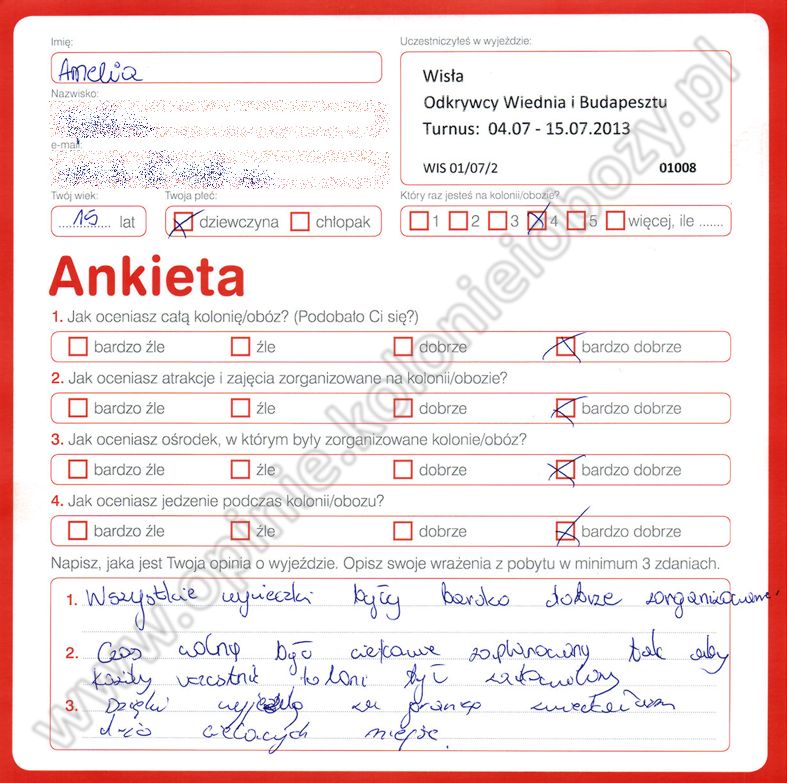 Imię:
Amelia
Nazwisko:
e-mail:
Twój wiek:
15 lat
Twoja płeć:
dziewczyna chłopak
Uczestniczyłeś w wyjeździe:
Wisła
Odkrywcy Wiednia i Budapesztu
Turnus: 04.07 - 15.07.2013
WIS 01/07/2 01008
Który raz jesteś na kolonii/obozie?
1 2 3 4 5 więcej, ile .......
Ankieta
1. Jak oceniasz całą kolonię/obóz? (Podobało Ci się?)
bardzo źle źle dobrze bardzo dobrze
2. Jak oceniasz atrakcje i zajęcia zorganizowane na kolonii/obozie?
bardzo źle źle dobrze bardzo dobrze
3. Jak oceniasz ośrodek, w którym były zorganizowane kolonie/obóz?
bardzo źle źle dobrze bardzo dobrze
4. Jak oceniasz jedzenie podczas kolonii/obozu?
bardzo źle źle dobrze bardzo dobrze
Napisz, jaka jest Twoja opinia o wyjeździe. Opisz swoje wrażenia z pobytu w minimum 3 zdaniach.
1. Wszystkie wycieczki były bardzo dobrze zorganizowane.
2. Czas wolny był ciekawie zaplanowany tak aby
każdy uczestnik koloni był zadowolony
3. Dzięki wyjazdą za granicę
dużo ciekawych miejsc.
www.opinie.kolonieiobozy.pl